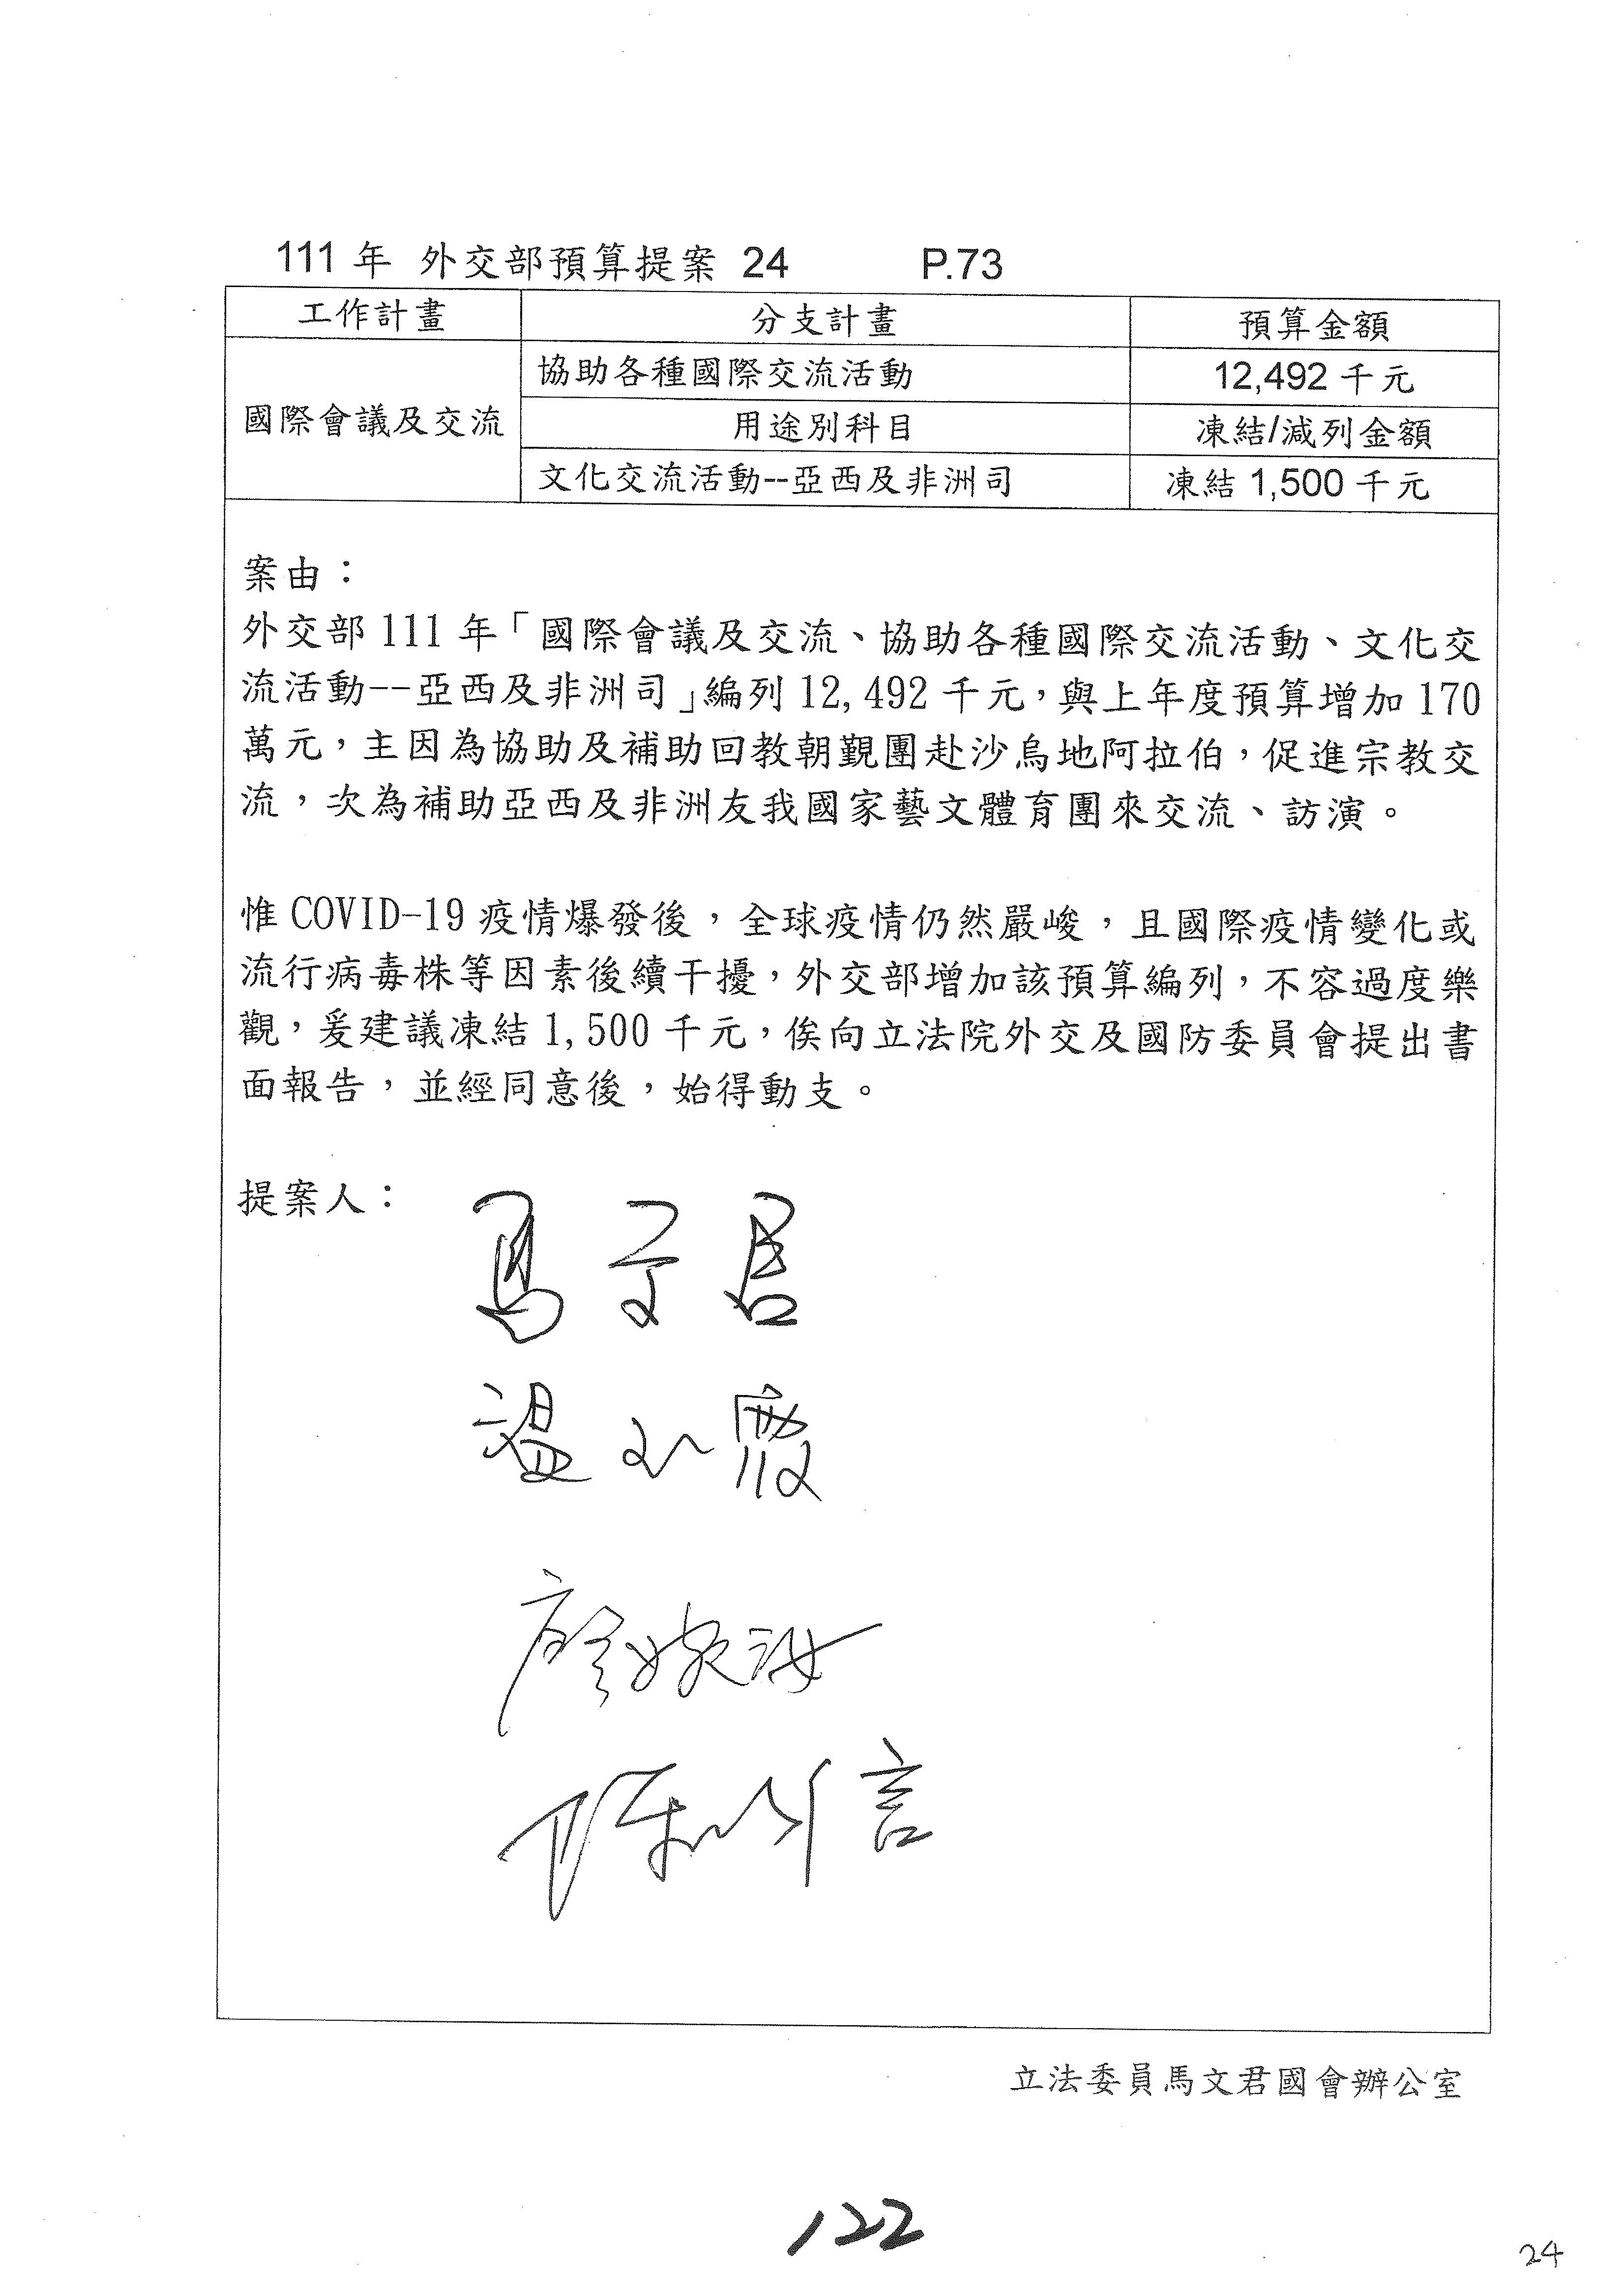 111 年 外交部預算提案 24 P.73
工作計畫 分支計畫 預算金額
國際會議及交流
協助各種國際交流活動 12,492 千元
用途別科目 凍結/減列金額
文化交流活動--亞西及非洲司 凍結 1,500 千元
案由：
外交部 111 年「國際會議及交流、協助各種國際交流活動、文化交
流活動--亞西及非洲司」編列 12,492 千元，與上年度預算增加 170
萬元，主因為協助及補助回教朝觐團赴沙烏地阿拉伯，促進宗教交
流，次為補助亞西及非洲友我國家藝文體育團來交流、訪演。
惟 COVID-19 疫情爆發後，全球疫情仍然嚴峻，且國際疫情變化或
流行病毒株等因素後續干擾，外交部增加該預算編列，不容過度樂
觀，爰建議凍結 1,500 千元，俟向立法院外交及國防委員會提出書
面報告，並經同意後，始得動支。
提案人：
馬文君
溫玉霞
廖婉汝
陳以信
立法委員馬文君國會辦公室
122
24